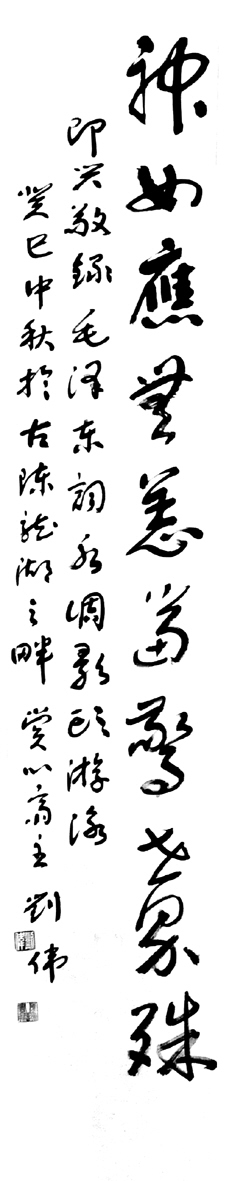 神女應無恙當驚世界殊
即兴敬錄毛泽东詞水调歌头游泳
癸巳中秋於古陈龙湖之畔 賞心斋主 劉伟